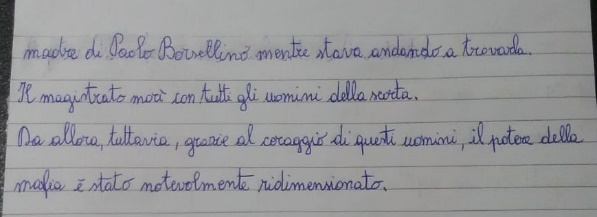 madre di Paolo Borsellino mentre stava andando a trovarla.
Il magistrato morì con tutti gli uomini della scorta.
Da allora, tuttavia, grazie al coraggio di questi uomini, il potere della
mafia è stato notevolmente ridimensionato.